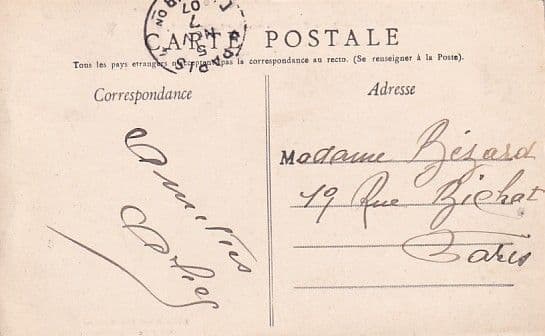 CARTE POSTALE
Tous les pays étrangers n'acceptent pas la correspondance au recto. (Se renseigner à la Poste).
Correspondance
Adresse
Amitiés
Madame Bézard
19 Rue Bichat
Paris